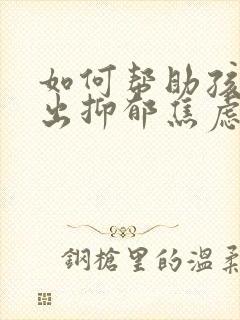 如何帮助孩
出抑郁焦虑
鋼槍里的温柔